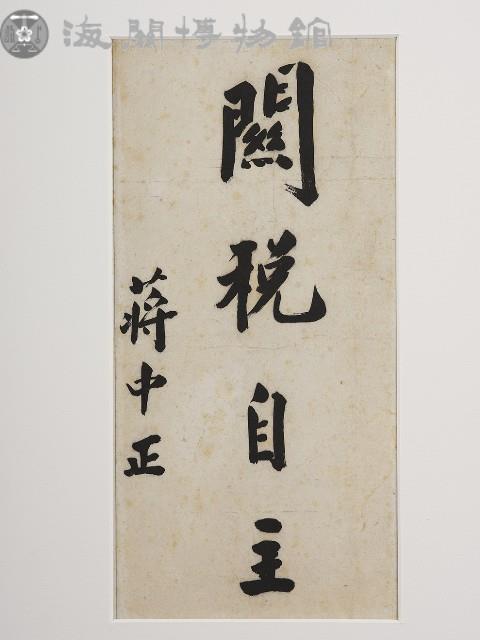 海關博物館
關稅自主
蔣中正